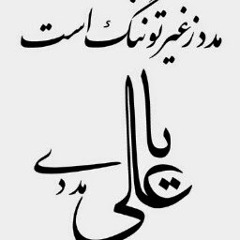 مدد ز غیر تو ننگ است
یا علی
مددی